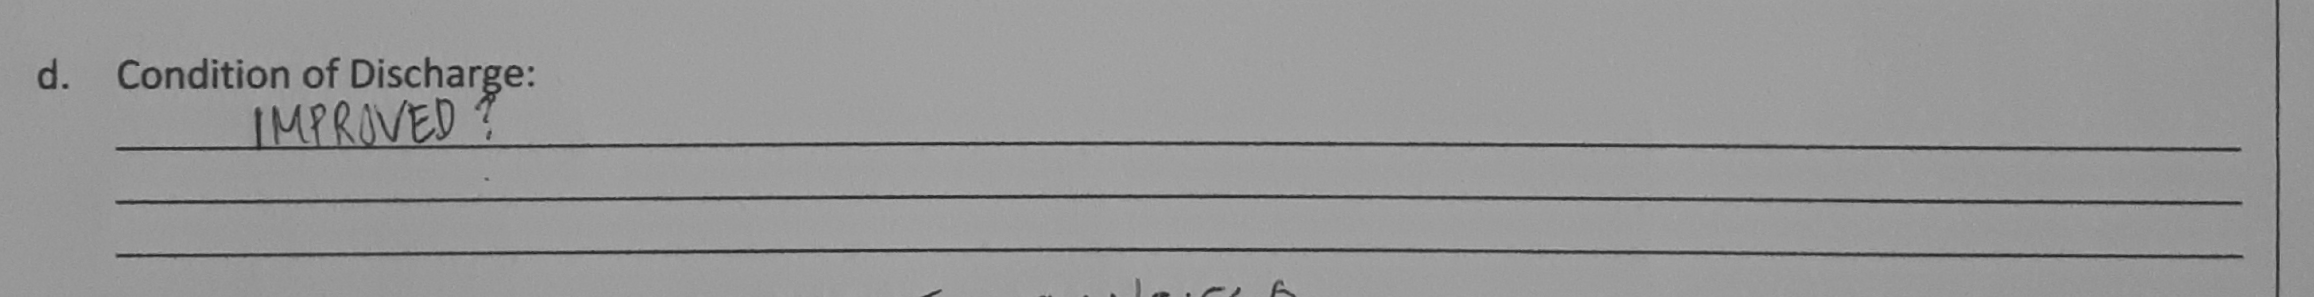 d. Condition of Discharge:
IMPROVED ?